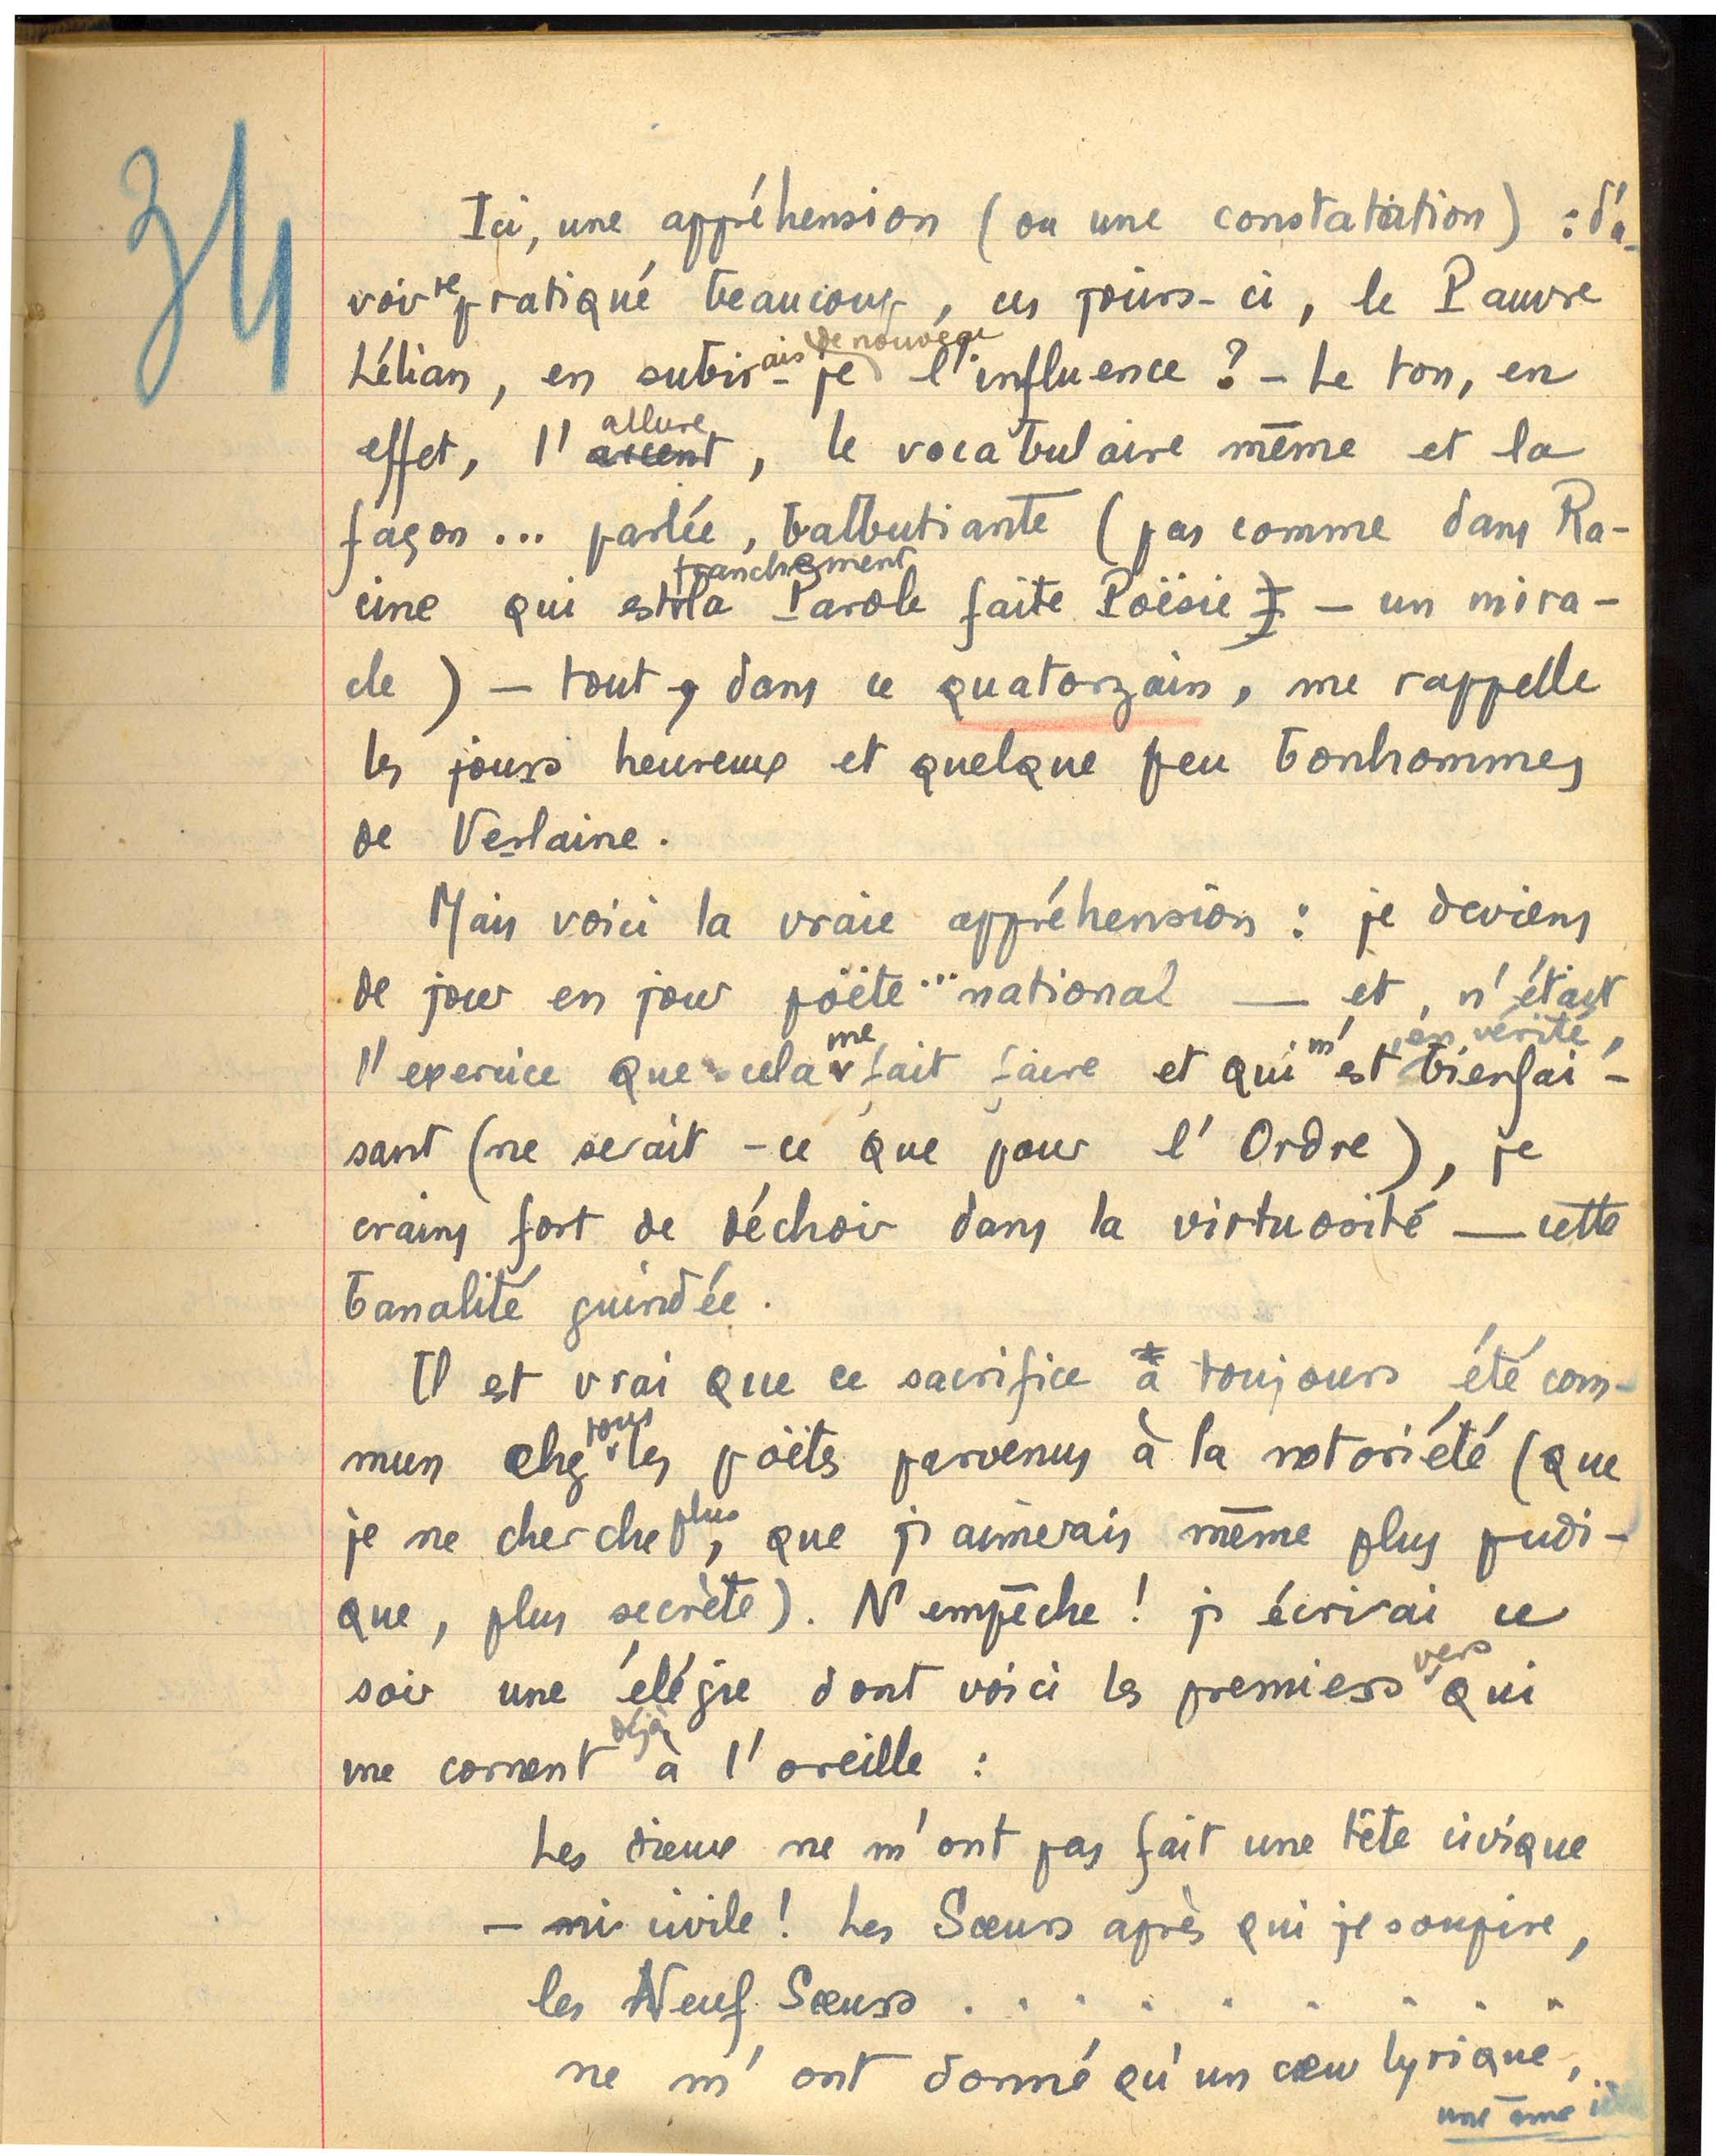 34
Ici, une appréhension (ou une constatation) : d'a-
voir repratiqué beaucoup, ces jours-ci, le Pauvre
de nouveau
Lélian, en subirais-je l'influence ? - Le ton, en
allure
effet, l'accent, le vocabulaire même et la
façon ... parlée, balbutiante (pas comme dans Ra-
franchement
cine qui est la Parole faite Poësie) — un mira-
cle ) — tout, dans ce quatorzain, me rappelle
les jours heureux et quelque peu bonhommes
de Verlaine.
Mais voici la vraie appréhension : je deviens
de jour en jour poëte ... national — et, n'était
me m' , en vérité,
l'exercice que cela fait faire et qui est bienfai-
sant (ne serait-ce que pour l'Ordre), je
crains fort de déchoir dans la virtuosité — cette
banalité guindée.
Il est vrai que ce sacrifice a toujours été com-
tous
mun chez les poëtes parvenus à la notoriété (que
plus
je ne cherche, que j'aimerais même plus pudi-
que, plus secrète). N'empêche ! j'écrirai ce
vers
soir une élégie dont voici les premiers qui
déjà
me cornent à l'oreille :
Les dieux ne m'ont pas fait une tête civique
— ni civile ! Les Sœurs après qui je soupire,
les Neuf Sœurs . . . . . . . . .
ne m'ont donné qu'un cœur lyrique,
une âme